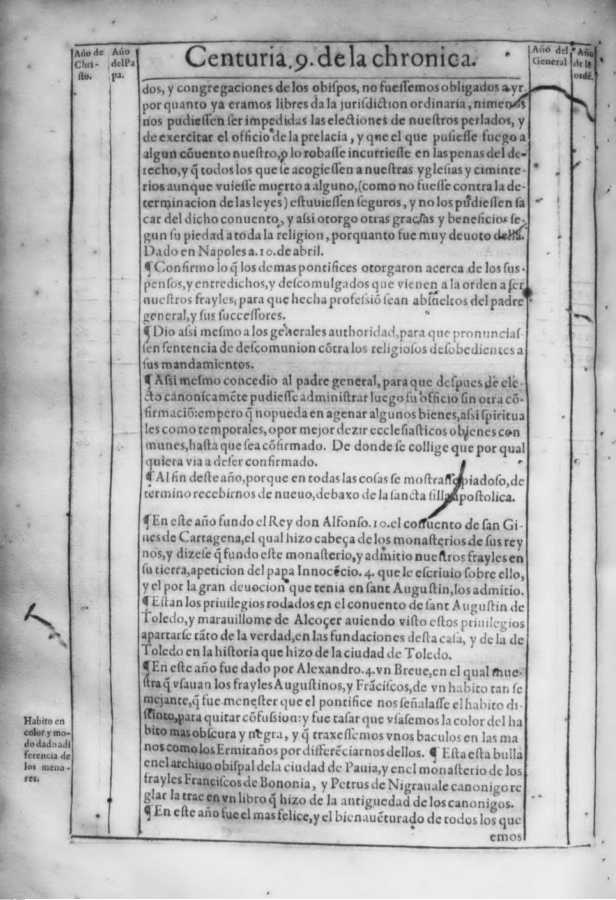 Año de Christo.
Año del Papa.
Centuria.9. de la chronica.
Año del General
Año de la ordē.
dos, y congregaciones de los obispos, no fuessemos obligados a yr
por quanto ya eramos libres da la jurisdiction ordinaria, ni menos
nos pudiessen ser impedidas las electiones de nuestros perlados, y
de exercitar el officio de la prelacia, y qne el que pusiesse fuego a
algun cōuento nuestro, o lo robasse incurriesse en las penas del de-
recho, y q̃ todos los que se acogiessen a nuestras yglesias y ciminte-
rios aunque vuiesse muerto a alguno, (como no fuesse contra la de-
terminacion de las leyes) estuuiessen seguros, y no los pudiessen sa
car del dicho conuento, y assi otorgo otras gracias y beneficios se-
gun su piedad a toda la religion, porquanto fue muy deuoto della.
Dado en Napoles a. 10. de abril.
¶ Confirmo lo q̃ los demas pontifices otorgaron acerca de los sus-
pensos, y entredichos, y descomulgados que vienen a la orden a ser
nuestros frayles, para que hecha professiō sean absueltos del padre
general, y sus successores.
¶ Dio assi mesmo a los generales authoridad, para que pronuncias
sen sentencia de descomunion cōtra los religiosos desobedientes a
sus mandamientos.
¶ Assi mesmo concedio al padre general, para que despues de ele-
cto canonicamēte pudiesse administrar luego su officio sin otra cō-
firmaciō: empero q̃ no pueda en agenar algunos bienes, assi spiritua
les como temporales, o por mejor dezir ecclesiasticos o bienes con
munes, hasta que sea cōfirmado. De donde se collige que por qual
quiera via a de ser confirmado.
¶ Al fin deste año, porque en todas las cosas se mostrasse piadoso, de
termino recebirnos de nueuo, debaxo de la sancta silla apostolica.
¶ En este año fundo el Rey don Alfonso. 10. el conuento de san Gi-
nes de Cartagena, el qual hizo cabeça de los monasterios de sus rey
nos, y dizese q̃ fundo este monasterio, y admitio nuestros frayles en
su tierra, a peticion del papa Innocēcio. 4. que le escriuio sobre ello,
y el por la gran deuocion que tenia en sant Augustin, los admitio.
¶ Estan los priuilegios rodados en el conuento de sant Augustin de
Toledo, y marauillome de Alcoçer auiendo visto estos priuilegios
apartarse tāto de la verdad, en las fundaciones desta casa, y de la de
Toledo en la historia que hizo de la ciudad de Toledo.
¶ En este año fue dado por Alexandro. 4. vn Breue, en el qual mue-
stra q̃ vsauan los frayles Augustinos, y Frāciscos, de vn habito tan se
mejante, q̃ fue menester que el pontifice nos señalasse el habito di-
stinto, para quitar cōfusion: y fue tasar que vsasemos la color del ha
bito mas obscura y negra, y q̃ traxessemos vnos baculos en las ma
nos como los Ermitaños por differēciarnos dellos. ¶ Esta esta bulla
en el archiuo obispal de la ciudad de Pauia, y en el monasterio de los
frayles Franciscos de Bononia, y Petrus de Nigrauale canonigo re
glar la trae en vn libro q̃ hizo de la antiguedad de los canonigos.
¶ En este año fue el mas felice, y el bienauēturado de todos los que
emos
Habito en
color y mo-
do dado a di
ferencia de
los meno-
res.